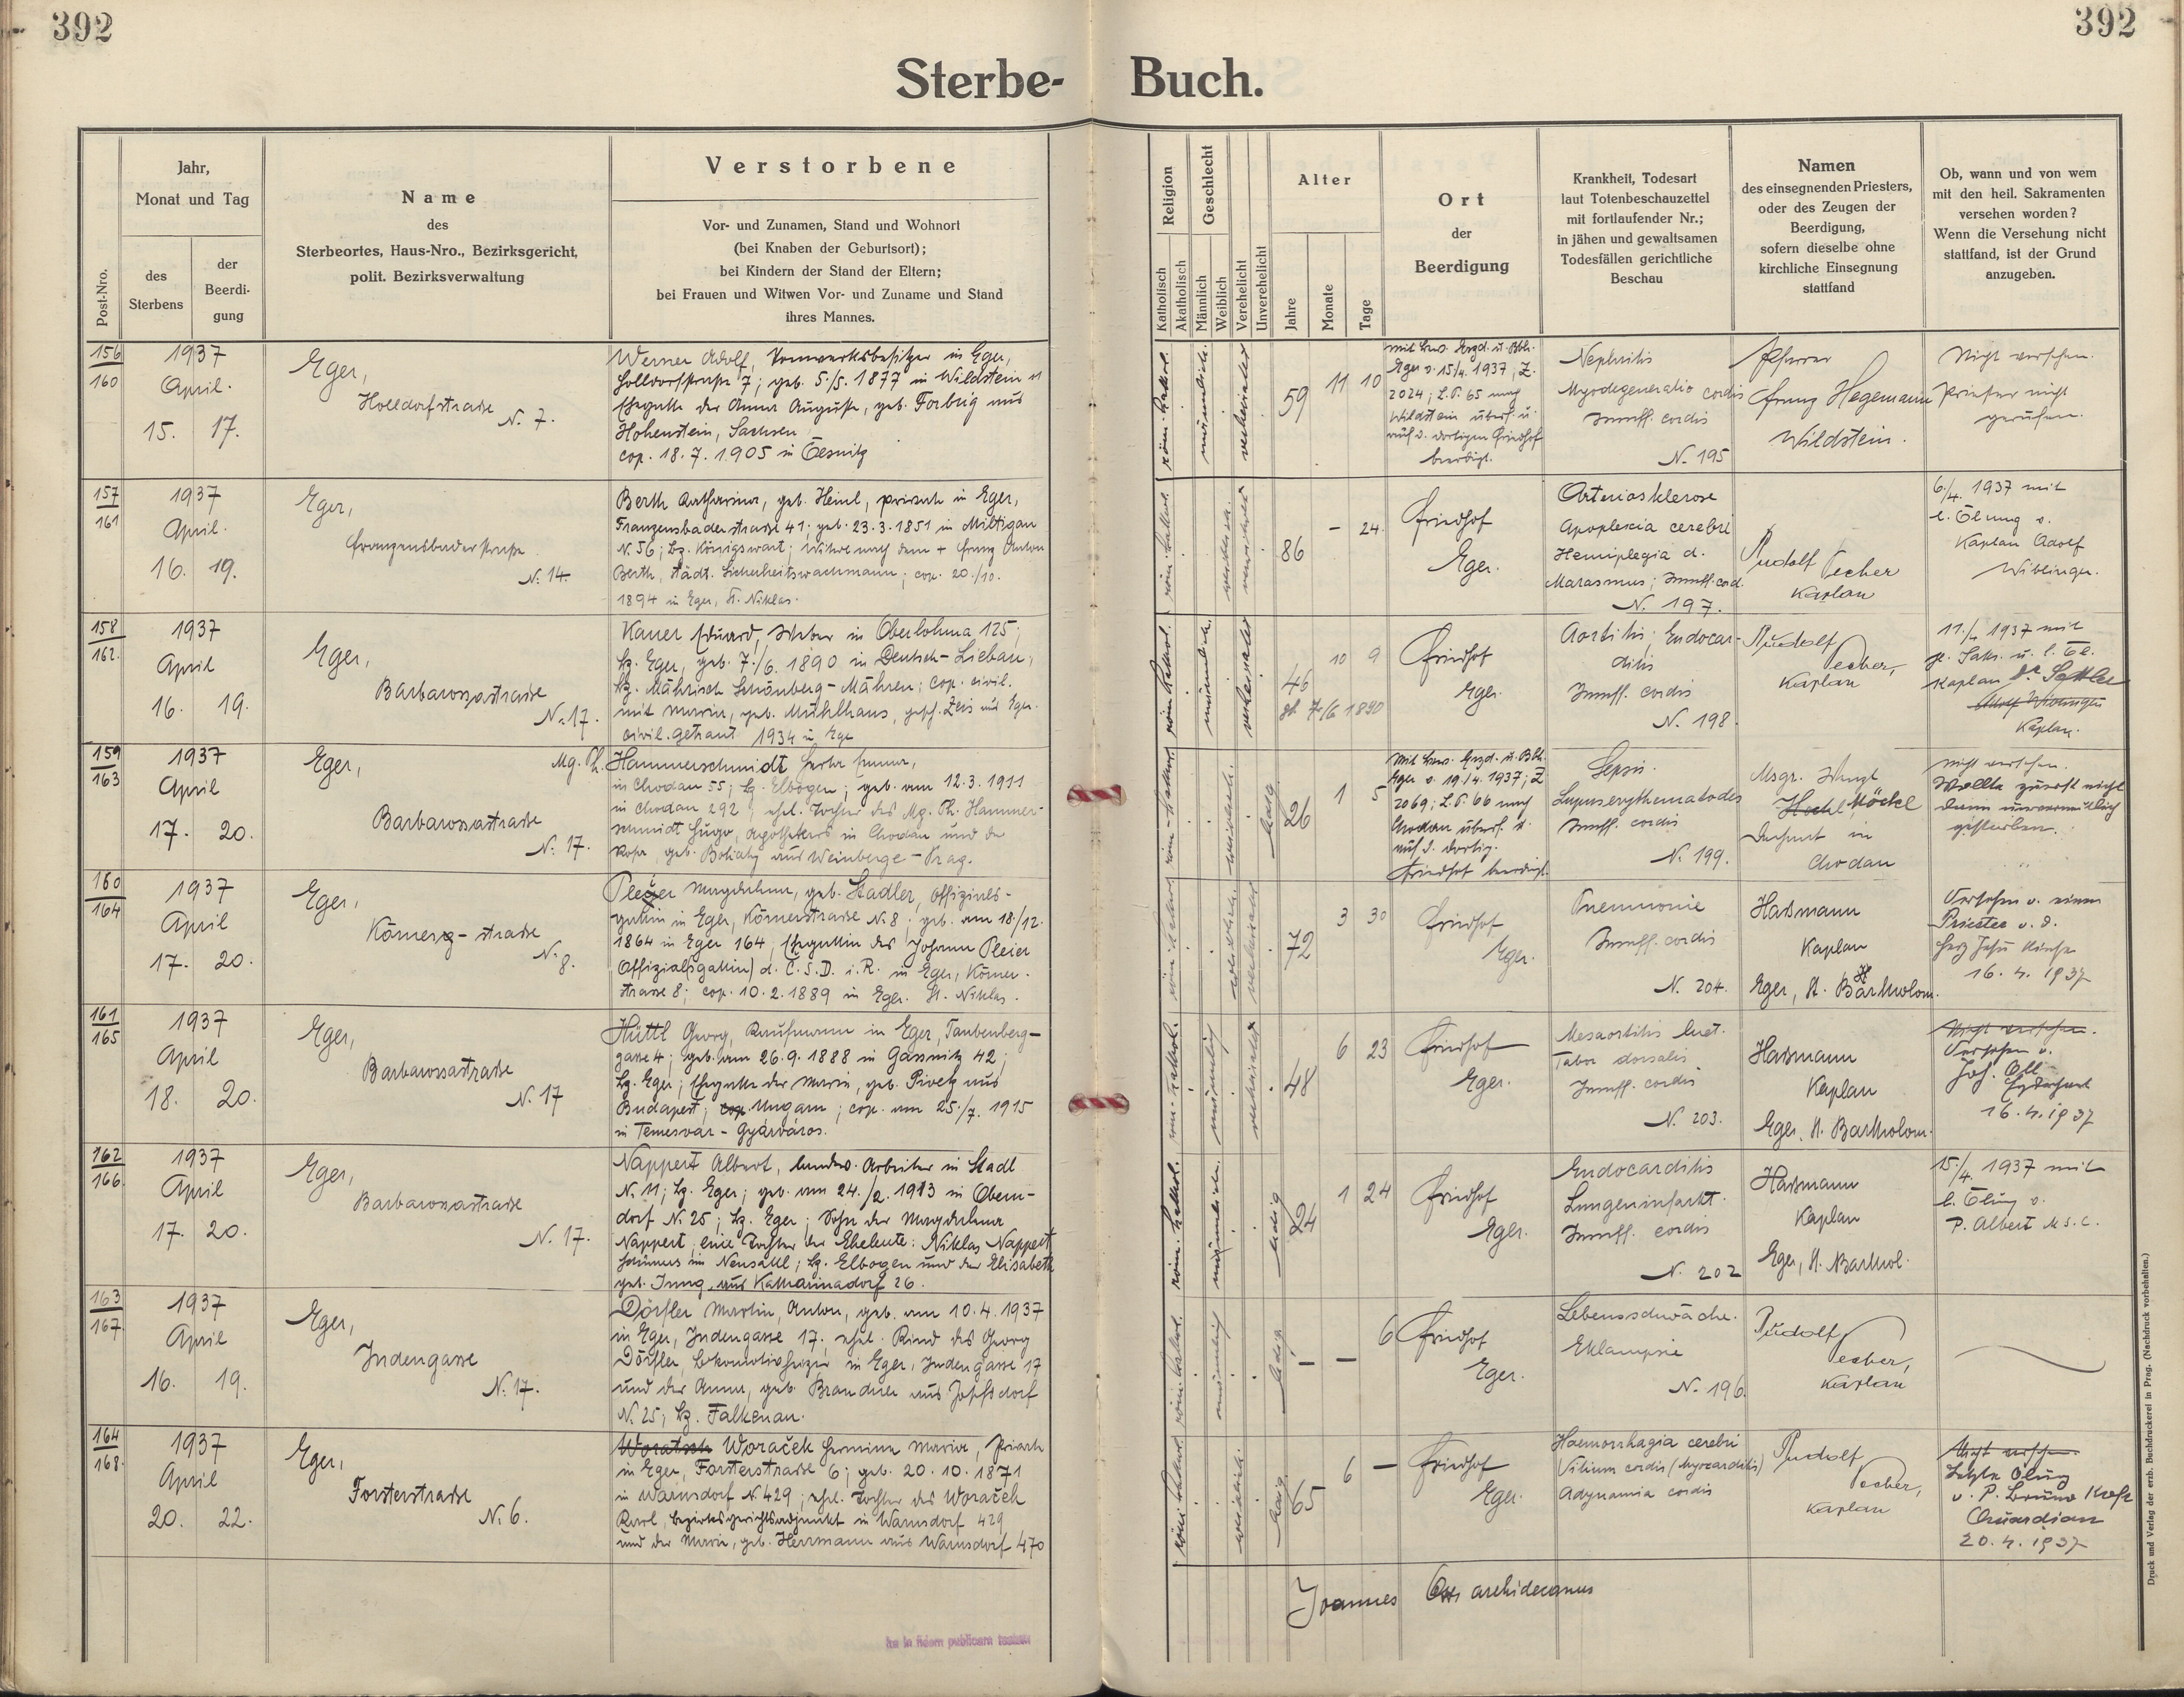 392
392
Sterbe- Buch.
Post-Nro.
Jahr,
Monat und Tag
des
Sterbens
der
Beerdi-
gung
Name
des
Sterbeortes, Haus-Nro., Bezirksgericht,
polit. Bezirksverwaltung
Verstorbene
Vor- und Zunamen, Stand und Wohnort
(bei Knaben der Geburtsort);
bei Kindern der Stand der Eltern;
bei Frauen und Witwen Vor- und Zuname und Stand
ihres Mannes.
Religion
Katholisch
Akatholisch
Geschlecht
Männlich
Weiblich
Verehelicht
Unverehelicht
Alter
Jahre
Monate
Tage
Ort
der
Beerdigung
Krankheit, Todesart
laut Totenbeschauzettel
mit fortlaufender Nr.;
in jähen und gewaltsamen
Todesfällen gerichtliche
Beschau
Namen
des einsegnenden Priesters,
oder des Zeugen der
Beerdigung,
sofern dieselbe ohne
kirchliche Einsegnung
stattfand
Ob, wann und von wem
mit den heil. Sakramenten
versehen worden?
Wenn die Versehung nicht
stattfand, ist der Grund
anzugeben.
156
160
1937
April.
15. 17.
Eger,
Holldorfstrasse
N. 7.
Werner Adolf, in Eger,
Holldorfstrasse 7; geb. 5./5. 1877 in Wildstein
Ehegatte der Anna Auguste, geb. Forbrig aus
Hohenstein, Sachsen
cop. 18. 7. 1905 in
röm. kathol.
männlich.
verheiratet
59 11 10
mit Bew. Bzd. u. Bbh.
Eger v. 15/4. 1937, Z.
2024; L.P. 65 nach
Wildstein überf. u.
auf d. dortigen Friedhof
beerdigt.
Nephritis
Myodegeneratio cordis
Insuff. cordis
N. 195
Pfarrer
Franz Hegemann
Wildstein.
Nicht versehen.
Priester nicht
gerufen.
157
161
1937
April.
16. 19.
Eger,
Franzensbaderstrasse
N. 14.
Berth Katharina, geb. Heinl, private in Eger,
Franzensbaderstrasse 41; geb. 23. 3. 1851 in Miltigau
N. 56; Bz. Königswart; Witwe nach dem + Franz Anton
Berth, städt. Sicherheitswachmann; cop. 20./10.
1894 in Eger, St. Niklas.
röm. kathol.
weiblich.
verwitwet
86 - 24.
Friedhof
Eger.
Arteriosklerose
Apoplexia cerebri
Hemiplegia d.
Marasmus; Insuff. cord.
N. 197.
Rudolf Pecher
Kaplan
6./4. 1937 mit
l. Ölung v.
Kaplan Adolf
Wiblinger.
158
162.
1937
April
16. 19.
Eger,
Barbarossastrasse
N. 17.
Kauer Eduard, Weber in Oberlohma 125;
Bz. Eger, geb. 7./6. 1890 in Deutsch-Liebau,
Bz. Mährisch Schönberg-Mähren; cop. civil.
mit Maria, geb. Mühlhaus, gesch. Zeis aus Eger.
civil. getraut 1934 in Eger
röm. kathol.
männlich.
verheiratet
46 10 9
gb. 7/6 1890
Friedhof
Eger.
Aortitis; Endocar-
ditis
Insuff. cordis
N. 198.
Rudolf
Pecher,
Kaplan
11./4. 1937 mit
hl. Sakr. u. l. Öl.
Kaplan Dr. Sattler
Kaplan.
159
163
1937
April
17. 20.
Eger,
Barbarossastrasse
N. 17.
Mg. Ph. Hammerschmidt Herta Emma,
in Chodau 55; Bz. Elbogen; geb. am 12. 3. 1911
in Chodau 292; ehel. Tochter des Mg. Ph. Hammer-
schmidt Hugo, Apothekers in Chodau und der
Rosa, geb. aus Weinberge - Prag.
röm.-kathol.
weiblich.
ledig
26 1 5
Mit Bew. Bzd. u. Bbh.
Eger v. 19./4. 1937; Z
2069; L.P. 66 nach
Chodau überf. u.
auf d. dortig.
Friedhof beerdigt.
Sepsis.
Lupus erythematodes
Insuff. cordis
N. 199.
Msgr. Wenzl
Hockl Möckl
Dechant in
Chodau
nicht versehen.
Wollte zuerst nicht
dann unvermutlich
gestorben.
160
164
1937
April
17. 20.
Eger,
Körner - strasse
N. 8.
Pleier Magdalena, geb. Stadler, Offizials-
gattin in Eger, Körnerstrasse N. 8; geb. am 18./12.
1864 in Eger 164; Ehegattin des Johann Pleier
Offizials(gattin) d. Č.S.D. i. R. in Eger, Körner-
strasse 8; cop. 10. 2. 1889 in Eger. St. Niklas.
röm. kathol.
weiblich.
verheiratet
72 3 30
Friedhof
Eger.
Pneumonie
Insuff. cordis
N. 204.
Haßmann
Kaplan
Eger, St. Bartholom.
Versehen v. einem
Priester v. d.
Herz Jesu Kirche
16. 4. 1937
161
165
1937
April
18. 20.
Eger,
Barbarossastrasse
N. 17
Hüttl Georg, Kaufmann in Eger, Taubenberg-
gasse 4; geb. am 26. 9. 1888 in Gassnitz 42;
Bz. Eger; Ehegatte der Maria, geb. Pivetz aus
Budapest; cop. Ungarn; cop. am 25./7. 1915
in Temesvár - Gyárváros.
röm-kathol.
männlich
verheiratet
48 6 23
Friedhof
Eger.
Mesaortitis luet.
Tabor dorsalis
Insuff. cordis
N. 203.
Haßmann
Kaplan
Eger, St. Bartholom.
Nicht versehen.
Versehen v.
Joh. Ott
Erzdechant
16. 4. 1937
162
166
1937
April
17. 20.
Eger,
Barbarossastrasse
N. 17.
Nappert Albert, landw. Arbeiter in Stadl
N. 11; Bz. Eger; geb. am 24./2. 1913 in Obern-
dorf N. 25; Bz. Eger; Sohn der Magdalena
Nappert, eine Tochter der Eheleute: Niklas Nappert
in Neusattl; Bz. Elbogen und der Elisabeth
geb. Jung aus Katharinadorf 26.
röm. kathol.
männlich.
ledig
24 1 24
Friedhof
Eger.
Endocarditis
Lungeninfarkt.
Insuff. cordis
N. 202
Haßmann
Kaplan
Eger, St. Barthol.
15./4. 1937 mit
l. Ölung v.
P. Albert M.S.C.
163
167
1937
April
16. 19.
Eger,
Judengasse
N. 17.
Dörfler Martin, Anton, geb. am 10. 4. 1937
in Eger, Judengasse 17; ehel. Kind des Georg
Dörfler, Lokomotivheizer in Eger, Judengasse 17
und der Anna, geb. Brandner aus Zopfsdorf
N. 25; Bz. Falkenau.
röm. kathol.
männlich
ledig
- - 6
Friedhof
Eger.
Lebensschwäche.
Eklampsie
N. 196.
Rudolf
Pecher,
Kaplan
164
168.
1937
April
20. 22.
Eger,
Forsterstrasse
N. 6.
Woratsch Woraček Hermine Maria, Private
in Eger, Forsterstrasse 6; geb. 20. 10. 1871
in Warnsdorf N. 429; ehel. Tochter des Woraček
Karl, Bezirksgerichtsadjunkt in Warnsdorf 429
und der Maria, geb. Herrmann aus Warnsdorf 470
röm. kathol.
weiblich.
ledig
65 6 -
Friedhof
Eger.
Haemorrhagia cerebri
Vitium cordis (Myocarditis)
Adynamia cordis
Rudolf
Pecher,
Kaplan
Nicht versehen.
Letzte Ölung
v. P. Bruno
Quardian
20. 4. 1937
Joannes Ott archidecanus
in fidem publicam
Druck und Verlag der erzb. Buchdruckerei in Prag. (Nachdruck vorbehalten.)